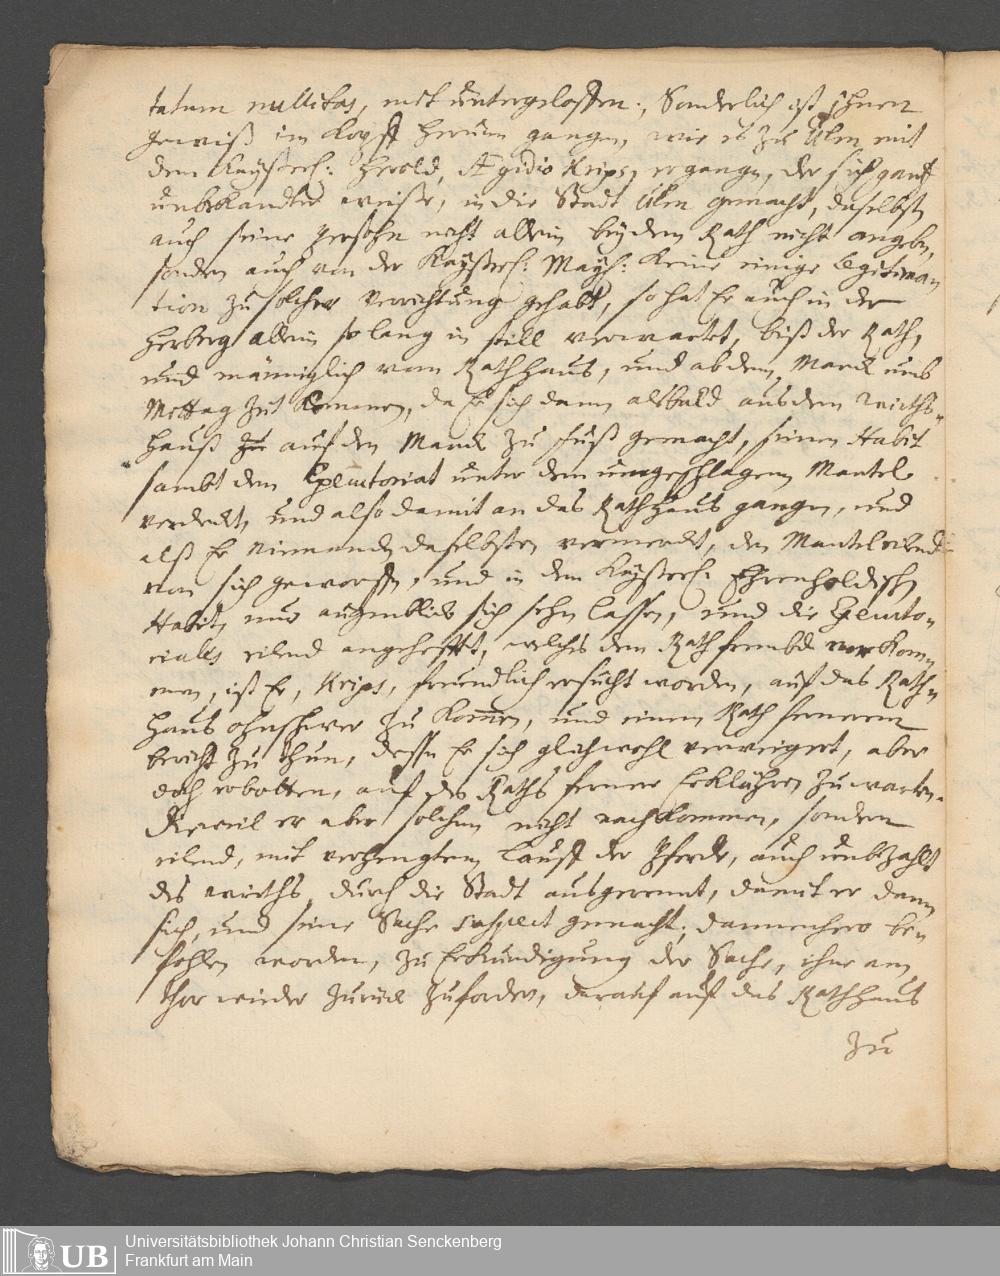 tatum nullitas, mit untergeloffen. Sonderlich ist ihnen
gewiß im Kopff herum gangen, wie es zu Ulm mit
dem Kayßerl: Herold, Ægidio Krips, ergangen, der sich gantz
unbekandter weiße, in die Statt Ulm gemacht, daselbsten
auch seine persohn nicht allein bey dem Rath nicht angeben,
sondern auch von der Kayßerl: Mayst: keine einige legitima-
tion zu solcher verrichtung gehabt, so hat Er auch in der
Herberg allein so lang in still verwartet, biß der Rath,
und männiglich vom Rathhaus, und ab dem Marck umb
Mittag Zeit kommen, da Er sich dann alßbald aus dem wirths-
hauß auf den Marck zu fuß gemacht, seinen Habit
sambt dem Executoriat unter dem umgeschlagenen Mantel
verdeckt, und also damit an das Rathhaus gangen, und
alß Er niemandt daselbsten vermerckt, den Mantel eilend
von sich geworffen, und in dem Kayßerl: Ehrenholdischen
Habit, nur augenblick sich sehen lassen, und die Executo-
riales eilend angehefftet, welches dem Rath frembd vorkom-
men, ist Er, Krips, freundlich ersucht worden, auf das Rath-
haus ohnschwer zu kommen, und einem Rath fernern
bericht zu thun, dessen Er sich gleichwohl verweigert, aber
doch erbotten, auf des Raths ferner Erklähren zu warten.
Dieweil er aber solchem nicht nachkommen, sondern
eilend, mit verhengtem Lauff der Pferde, auch unbezahlt
des wirths, durch die Stadt ausgerennt, damit er dann
sich, und seine Sache suspect gemacht; dannenhero be-
fohlen worden, zu Erkundigung der Sache, ihne am
thor wieder zurück zufordern, darauf auf das Rathhaus
zu
UB
Universitätsbibliothek Johann Christian Senckenberg
Frankfurt am Main